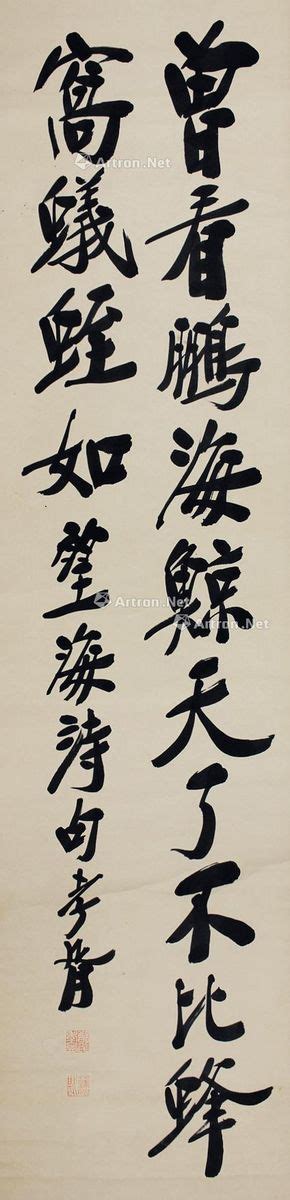 曾看鵬海鯨天了不比蜂
窩蟻蛭如望海詩句孝胥
Artron.Net
Artron.Net
Artron.Net
Artron.Net